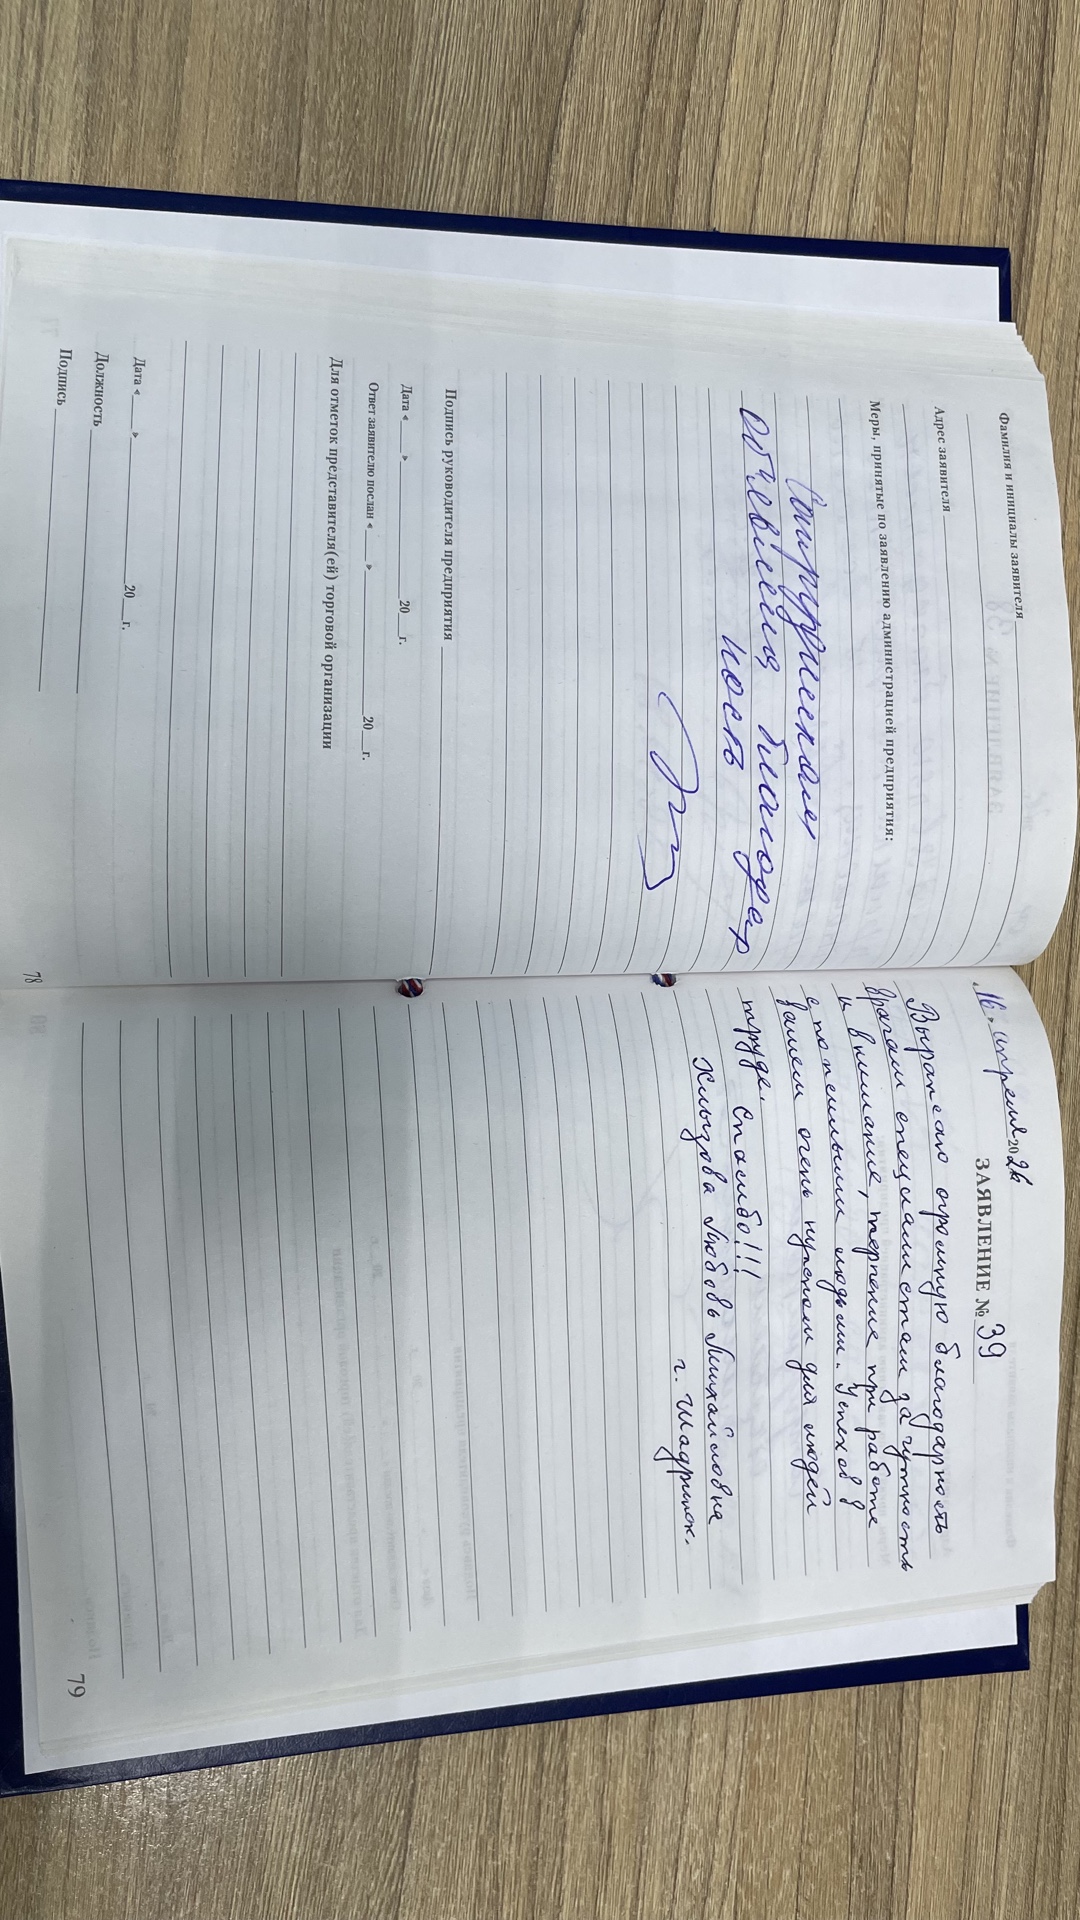 Фамилия и инициалы заявителя
Адрес заявителя
Меры, принятые по заявлению администрацией предприятия:
Сотрудникам
объявлена благодар
ность
Подпись руководителя предприятия
Дата « » 20 г.
Ответ заявителю послан « » 20 г.
Для отметок представителя(ей) торговой организации
Дата « » 20 г.
Должность
Подпись
78
ЗАЯВЛЕНИЕ № 39
«16» апреля 2026
Выражаю огромную благодарность
врачам специалистам за чуткость
и внимание, терпение при работе
с пожилыми людьми. Успехов в
вашем очень нужном для людей
труде. Спасибо!!!
Хмызова Любовь Михайловна
г. Шадринск.
79